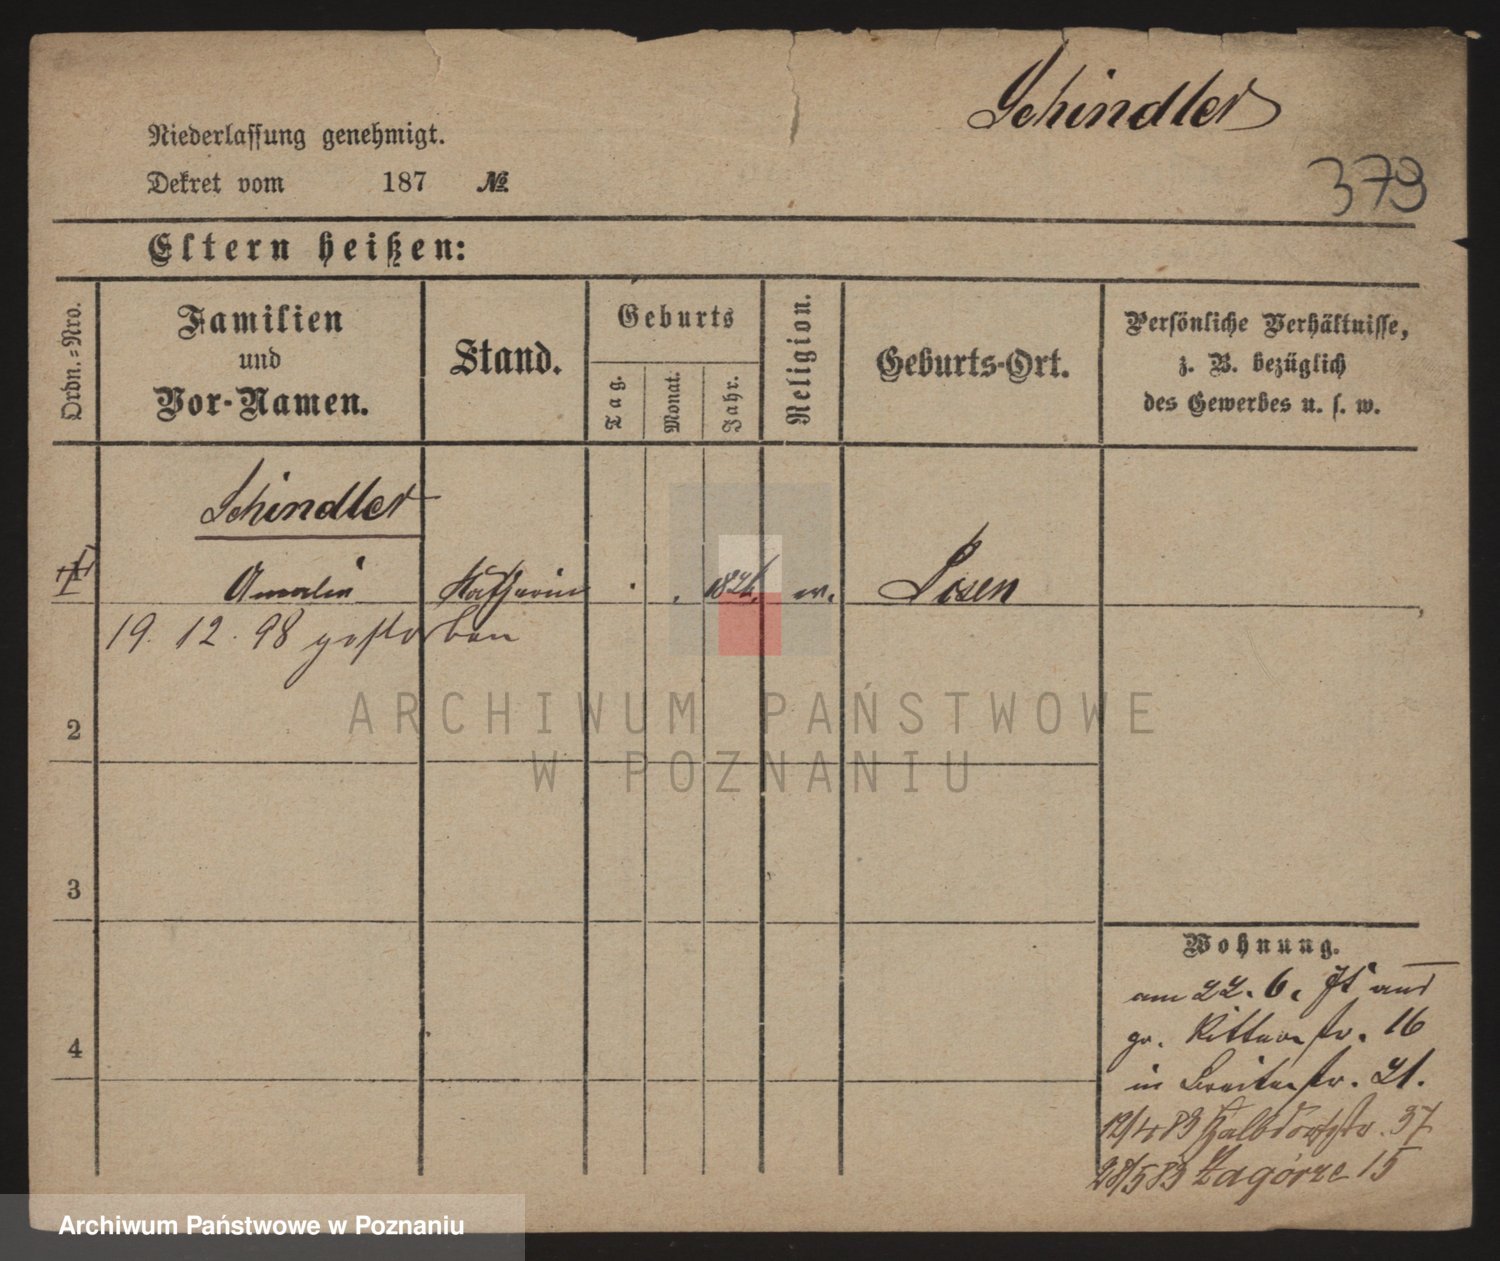 Schindler
379
Niederlassung genehmigt.
Dekret vom 187 №
Eltern heißen:
Ordn.-Nro.
Familien
und
Vor-Namen.
Stand.
Geburts
Tag.
Monat.
Jahr.
Religion.
Geburts-Ort.
Persönliche Verhältnisse,
z. B. bezüglich
des Gewerbes u. s. w.
Schindler
1 Amalie
Posen
19. 12. 98 gestorben
2
3
4
Wohnung.
am 22. 6. aus
gr. Ritterstr. 16
in Breitestr. 21.
19/4 83 Halbdorfstr. 37
28/5 83 Zagórze 15
ARCHIWUM PAŃSTWOWE
W POZNANIU
Archiwum Państwowe w Poznaniu